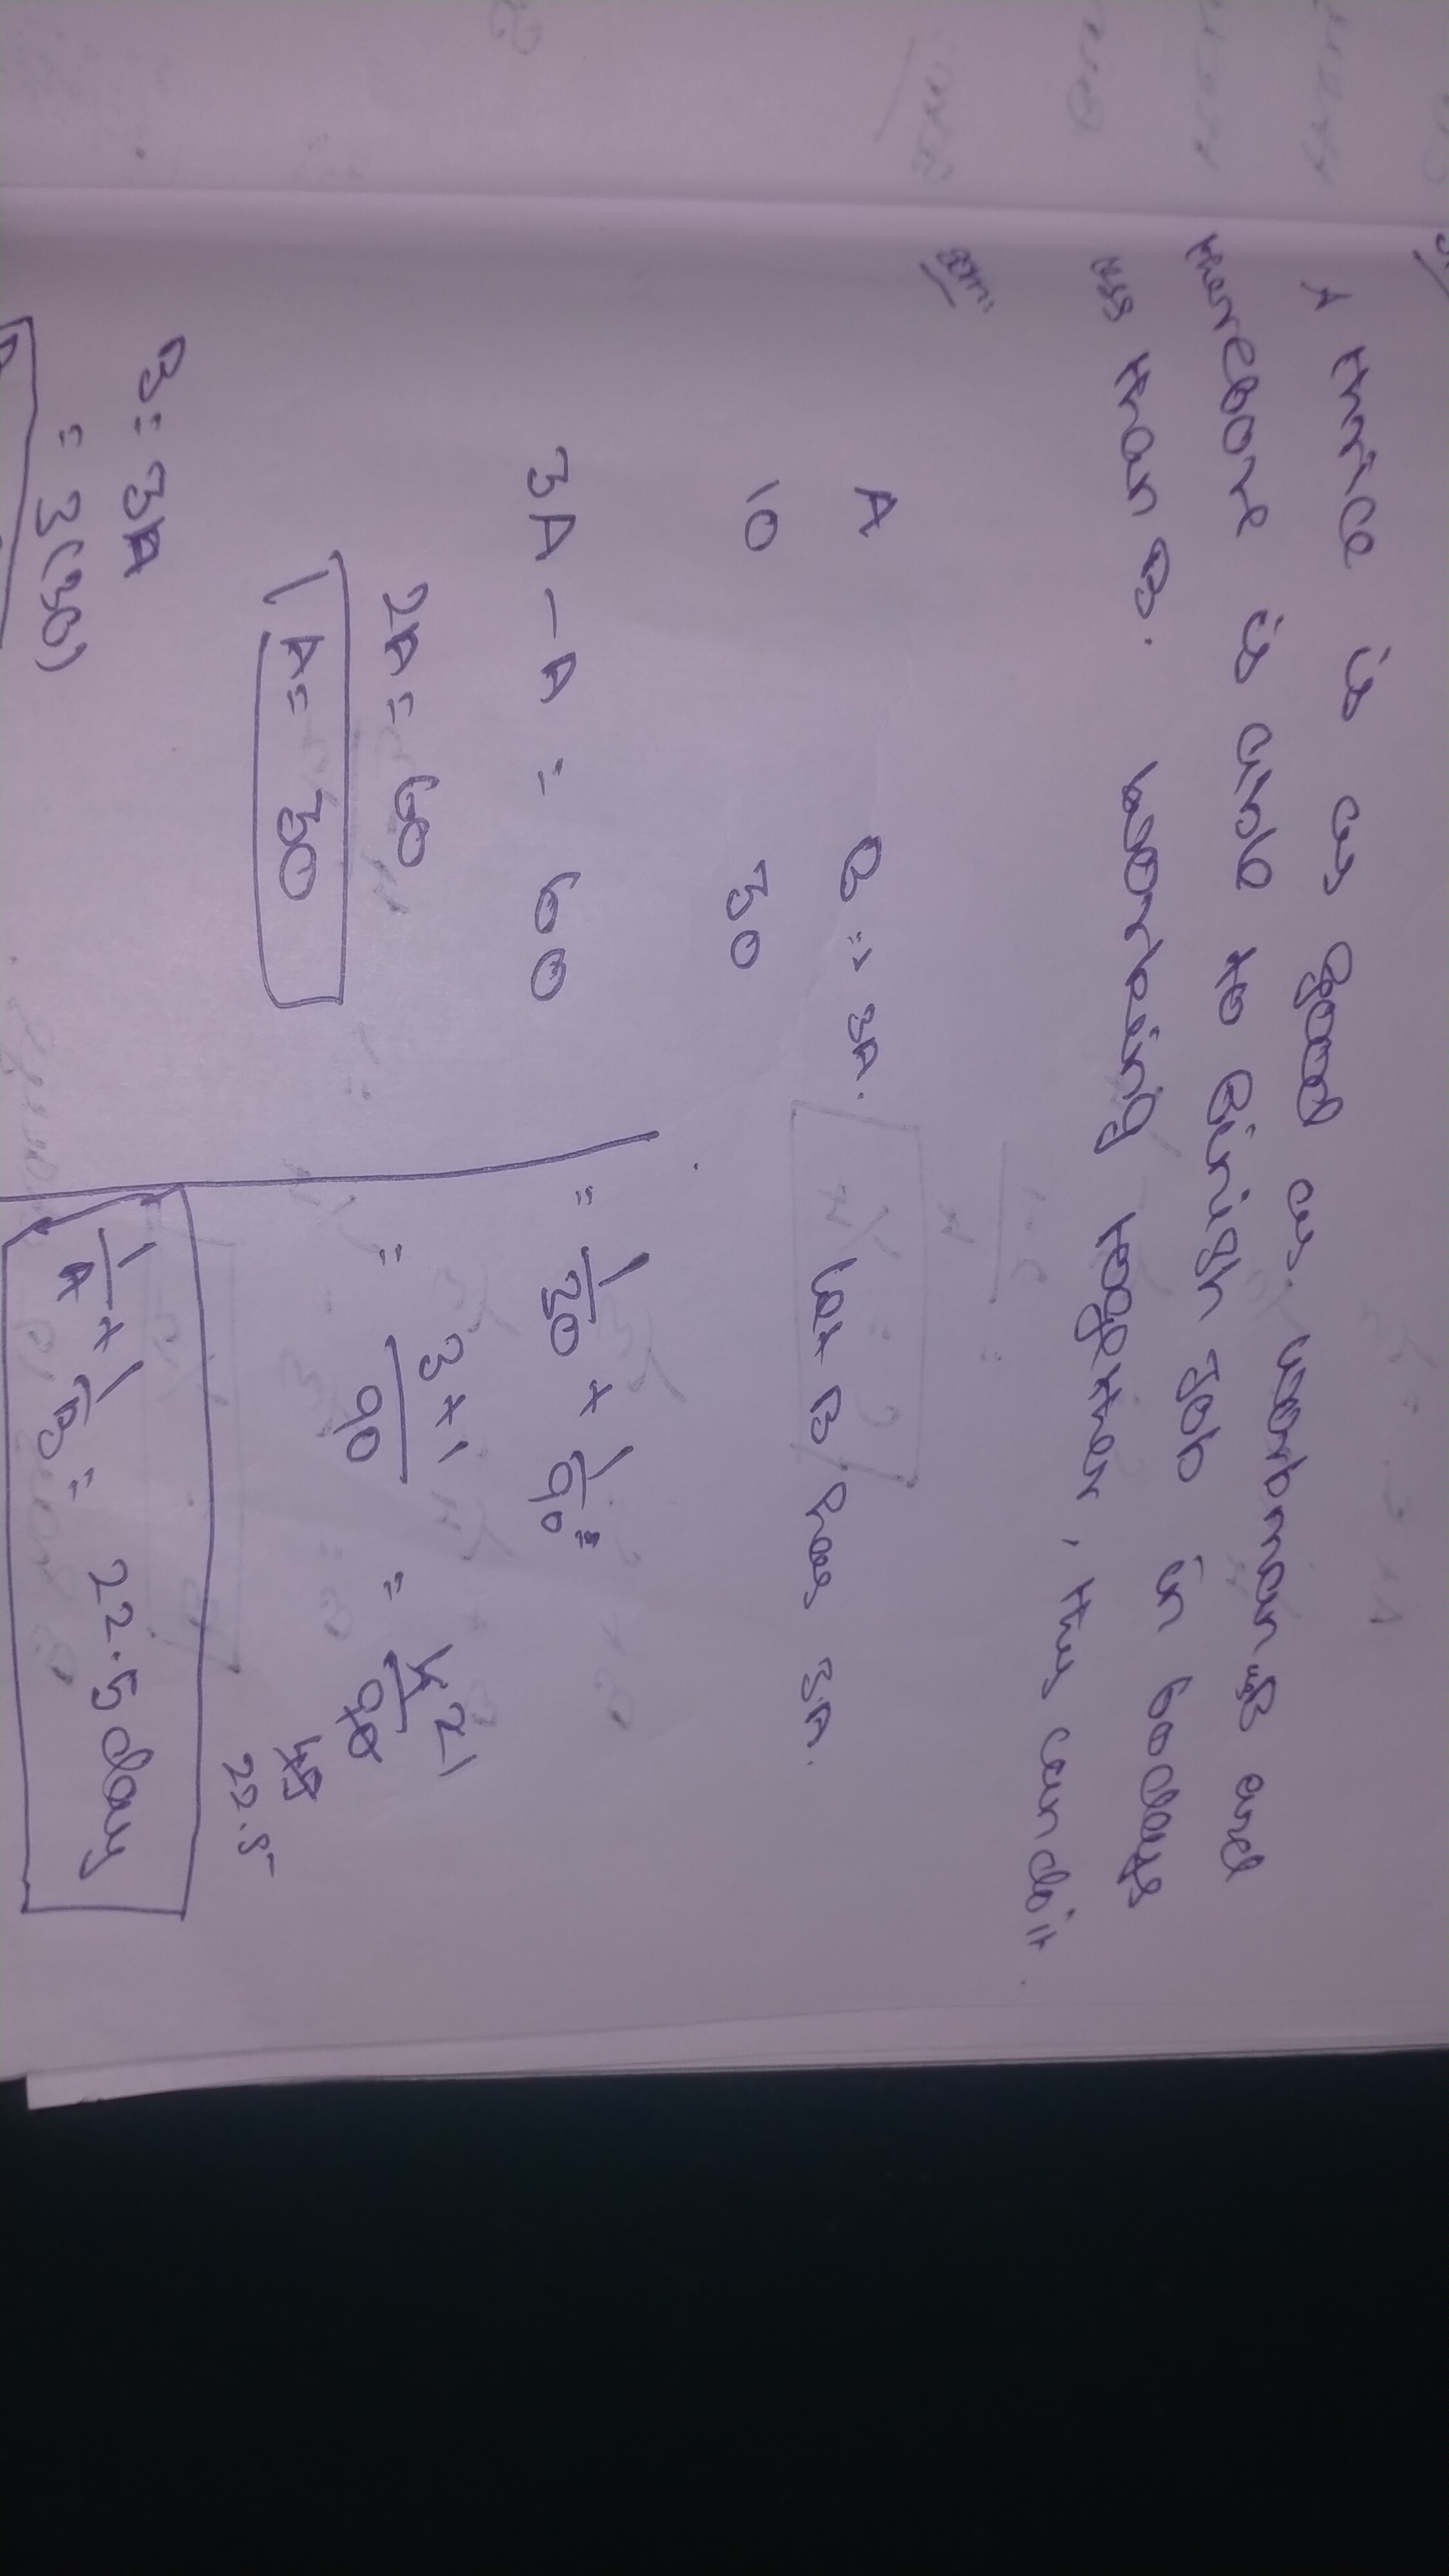 A thrice is as good as workman B and
therefore is able to finish Job in 60 days
less than B. Working together, they can do it.
Soln:
A B => 3A. let B has 3A.
10 30
3A - A = 60
2A = 60
A = 30
B = 3A
= 3(30)
= 1/30 + 1/90 =
= 3+1/90 = 4/90 2 1
45
22.5
1/A + 1/B = 22.5 day